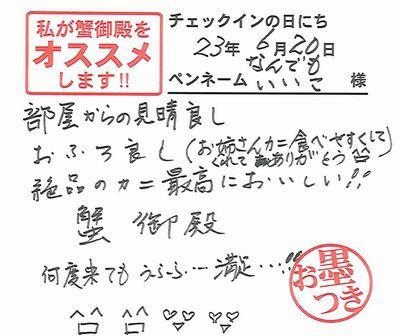 私が蟹御殿を
オススメ
します!!
チェックインの日にち
23年 6月20日
なんでも
ペンネーム いいこ 様
部屋からの見晴良し
おふろ良し(お姉さんカニ食べやすくして
くれてありがとう
絶品のカニ最高においしい!!
蟹 御殿
何度来てもうふふ…満足…!!
お墨つき